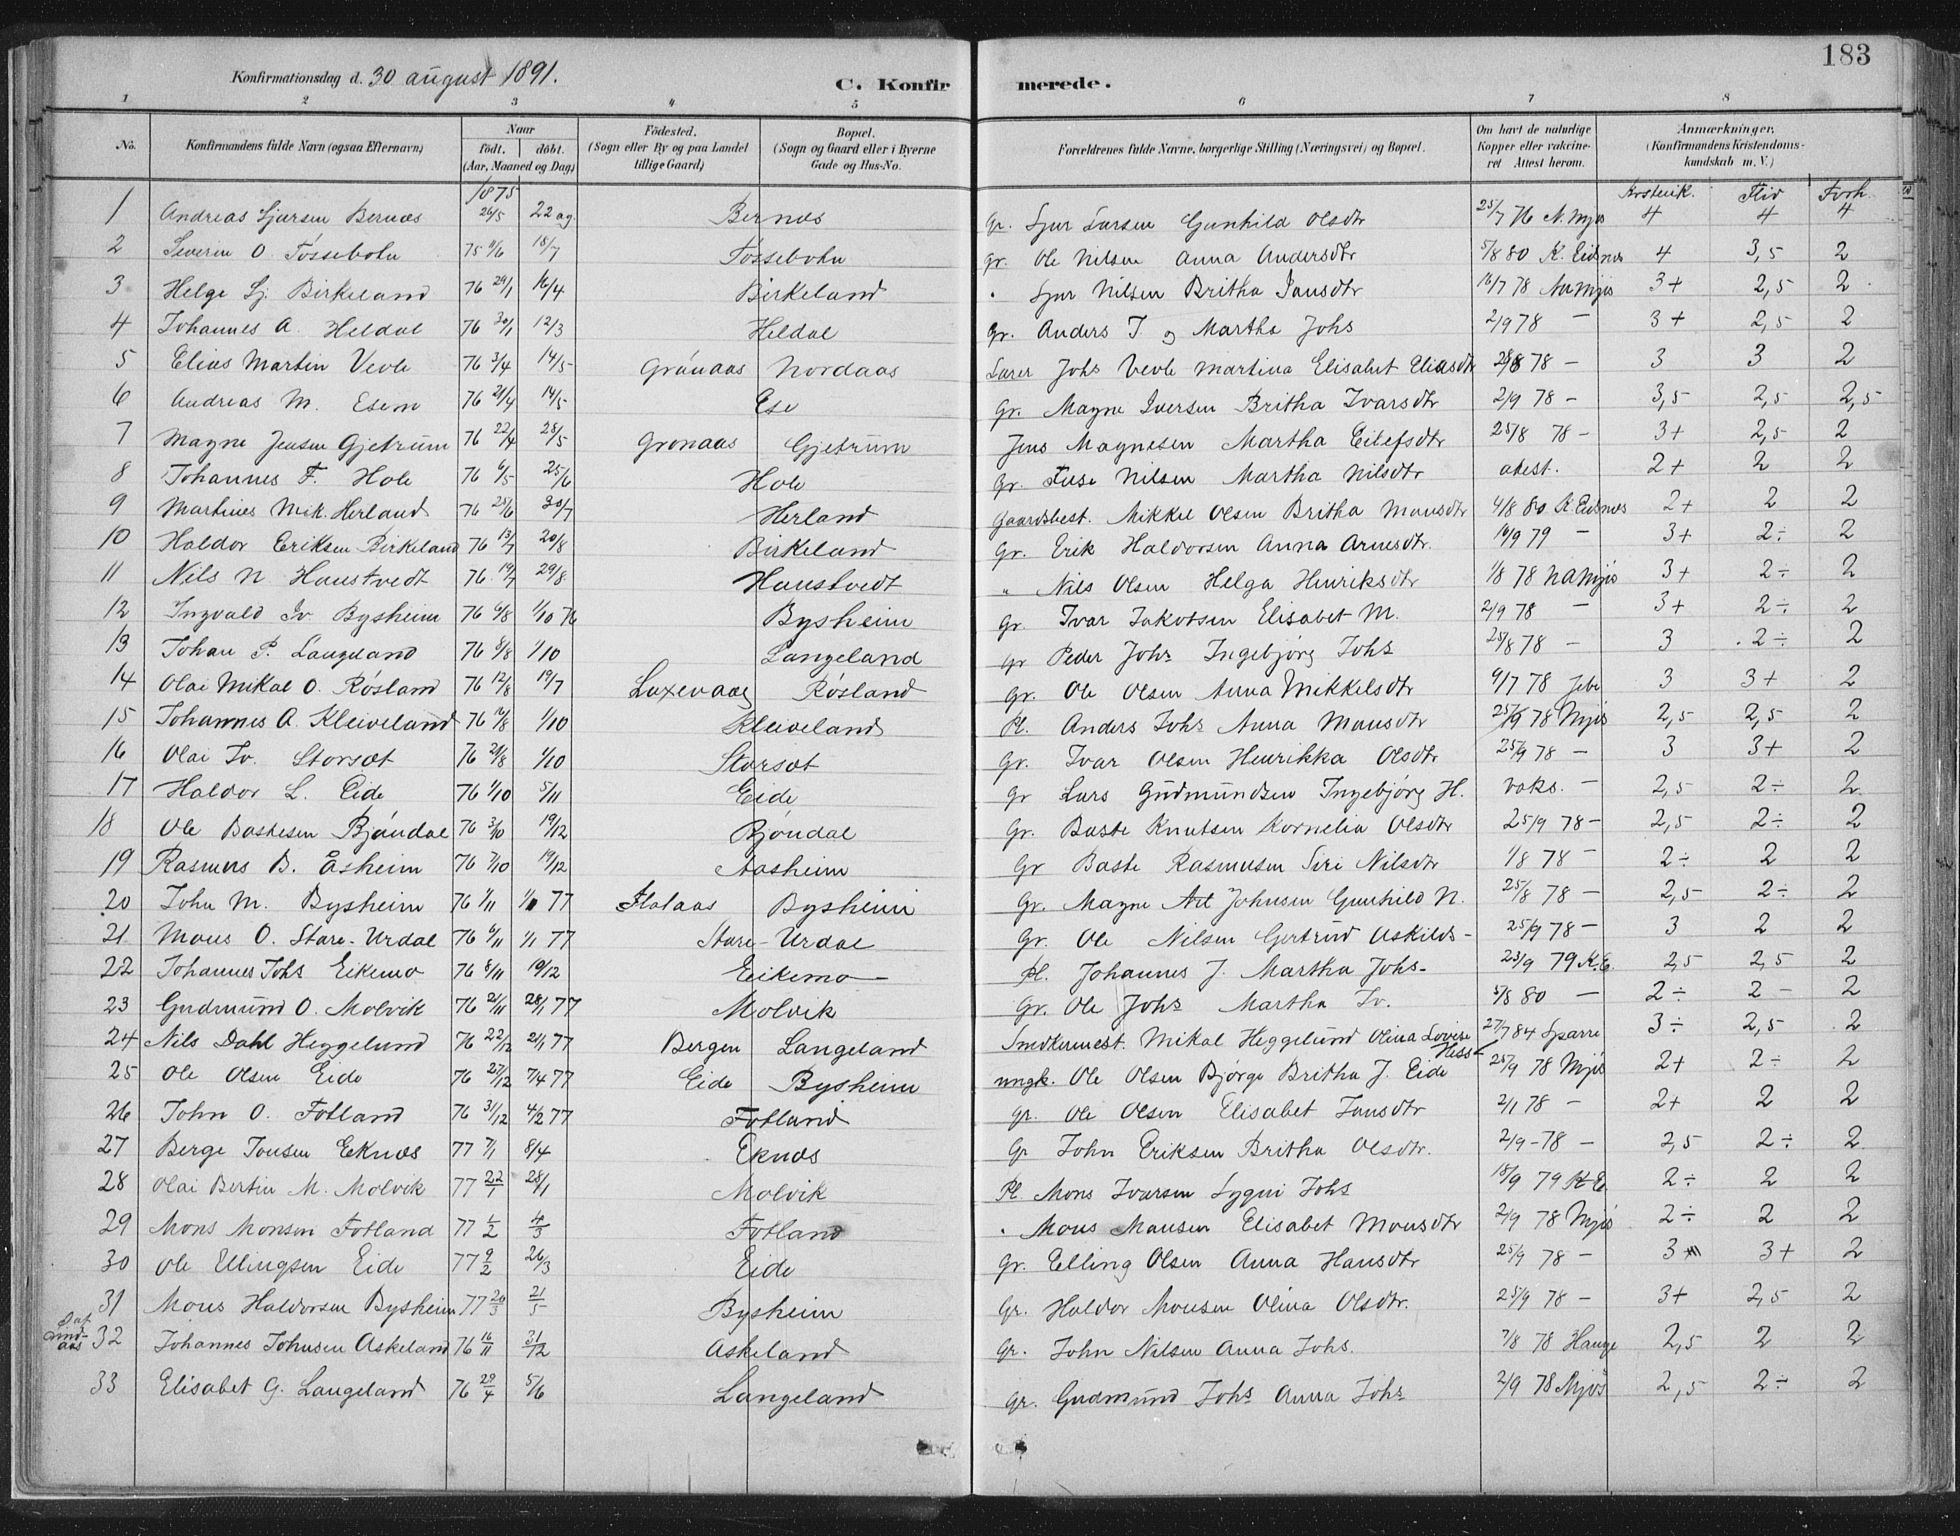 183
Konfirmationsdag d. 30 august 1891. C. Konfir merede.
1 2 3 4 5 6 7 8
No. Konfirmandens fulde Navn (ogsaa Efternavn) Naar födt. döbt. (Aar, Maaned og Dag) Födested. (Sogn eller By og paa Landet tillige Gaard) Bopæl. (Sogn og Gaard eller i Byerne Gade og Hus-No. Forældrenes fulde Navne, borgerlige Stilling (Næringsvei) og Bopæl. Om havt de naturlige Kopper eller vakcineret Attest herom. Anmærkninger, (Konfirmandens Kristendomskundskab m. V.)
1875 Flid Forh.
1 Andreas Sjursen Bernæs 26/5 22 ag. Bernæs Gr. Sjur Larsen Gunhild Olsdtr 25/7 76 N. Mjøs 4 4 4
2 Severin O. Tössebohn 75 11/6 18/7 Tössebohn Gr. Ole Nilsen Anna Andersdtr 5/8 80 K. Eidsnes 4 3,5 2
3 Helge Sj. Birkeland 76 29/1 16/4 Birkeland Sjur Nilsen Britha Jansdtr 16/7 78 NaMjøs 3+ 2,5 2
4 Johannes A. Heldal 76 30/1 12/3 Heldal Gr. Anders J og Martha Johs 2/9 78 – 3+ 2,5 2
5 Elias Martin Vevle 76 3/4 14/5 Grönaas Nordaas Lærer Johs Vevle Martina Elisabet Eliasdtr 28/8 78 – 3 3 2
6 Andreas M. Esem 76 21/4 14/5 Ese Gr. Magne Iversen Britha Ivarsdtr 2/9 78 – 3,5 2,5 2,5
7 Magne Jensen Gjetrum 76 22/4 28/5 Gronaas Gjetrum Jens Magnesen Martha Eilefsdtr 25/8 78 – 3+ 2,5 2
8 Johannes F. Hole 76 6/5 25/6 Hole Gr. Nilsen Martha Nilsdtr atest. 2+ 2 2
9 Martines Mik. Herland 76 25/6 30/7 Herland Gaardsbest. Mikkel Olsen Britha Monsdtr 4/8 80 K Eidsnes 2+ 2 2
10 Haldor Eriksen Birkeland 76 13/7 20/8 Birkeland Gr. Erik Haldorsen Anna Arnesdtr. 16/9 79 – 3+ 2÷ 2
11 Nils N Haustvedt 76 19/7 29/8 Haustvedt " Nils Olsen Helga Hinriksdtr 1/8 78 NAMjøs 3+ 2÷ 2
12 Ingvald Iv. Bysheim 76 6/8 1/10 76 Bysheim Gr. Ivar Jakobsen Elisabet M. 2/9 78 – 3+ 2÷ 2
13 Johan P. Langeland 76 8/8 1/10 Langeland Gr Peder Johs Ingebjörg Johs 25/8 78 – 3 2÷ 2
14 Olai Mikal O. Røsland 76 12/8 19/7 Laxevaag Røsland Gr. Ole Olsen Anna Mikkelsdtr 9/7 78 3 3+ 2
15 Johannes A. Kleiveland 76 16/8 1/10 Kleiveland Pl. Anders Johs Anna Monsdtr 25/9 78 Mjøs 2,5 2,5 2
16 Olai Iv. Storsæt 76 21/8 1/10 Storsæt Gr. Ivar Olsen Henrikka Olsdtr 25/9 78 – 3 3+ 2
17 Haldor L. Eide 76 1/10 5/11 Eide Gr Lars Gudmundsen Ingebjörg H. vaks. – 2,5 2÷ 2
18 Ole Bastesen Bjöndal 76 3/10 19/12 Bjöndal Gr. Baste Knutsen Kornelia Olsdtr 25/9 78 – 2,5 2÷ 2
19 Rasmus B. Åsheim 76 7/10 19/12 Aasheim Gr Baste Rasmusen Siri Nilsdtr 1/8 78 – 2÷ 2 2
20 John M. Bysheim 76 1/11 1/1 77 Flataas Bysheim Gr. Magne Johnsen Gunhild N. 25/8 78 – 2,5 2÷ 2
21 Mons O. Stare-Urdal 76 6/11 1/1 77 Stare-Urdal Gr. Ole Nilsen Gertrud Askilds– 25/9 78 – 3 2 2
22 Johannes Johs Eikemo 76 8/11 19/12 Eikemo – Pl. Johannes J. Martha Johs– 23/9 79 K.E. 2,5 2,5 2
23 Gudmund O. Molvik 76 21/11 28/1 77 Molvik Gr. Ole Johs Martha Iv. 5/8 80 – 2÷ 2 – 2
24 Nils Dahl Heggelund 76 22/12 21/1 77 Bergen Langeland Snedkermest. Mikal Heggelund Olina Lovise Hess 27/7 84 Sparre 3÷ 2,5 2
25 Ole Olsen Eide 76 27/12 7/4 77 Eide Bysheim ungk. Ole Olsen Bjørge Britha J. Eide 25/9 78 Mjøs 2+ 2÷ 2
26 John O. Fotland 76 31/12 4/2 77 Fotland Gr. Ole Olsen Elisabet Jansdtr 2/1 78 – 2+ 2 2
27 Berge Jonsen Eknæs 77 7/1 8/4 Eknæs Gr John Eriksen Britha Olsdtr. 2/9 – 78 – 2,5 2÷ 2
28 Olai Bertin M. Molvik 77 22/1 28/1 Molvik Pl. Mons Ivarsen Sygni Johs 18/9 79 K E. 2÷ 2 2
29 Mons Monsen Fotland 77 1/2 4/3 Fotland Mons Monsen Elisabet Monsdtr 2/9 78 Mjøs 2÷ 2 2
30 Ole Ellingsen Eide 77 9/2 26/3 Eide Gr. Elling Olsen Anna Hansdtr 25/9 78 – 3 3+ 2
31 Mons Haldorsen Bysheim 77 20/3 21/5 Bysheim Gr. Haldor Monsen Olina Olsdtr. 25/9 78 – 3+ 2,5 2
32 Johannes Johnsen Askeland 76 16/11 31/12 Askeland Gr. John Nilsen Anna Johs. 7/8 78 Hauge 2,5 2 2
33 Elisabet G. Langeland 76 29/4 5/6 Langeland Gr. Gudmund Johs Anna Johs 2/9 78 Mjøs 2,5 2÷ 2